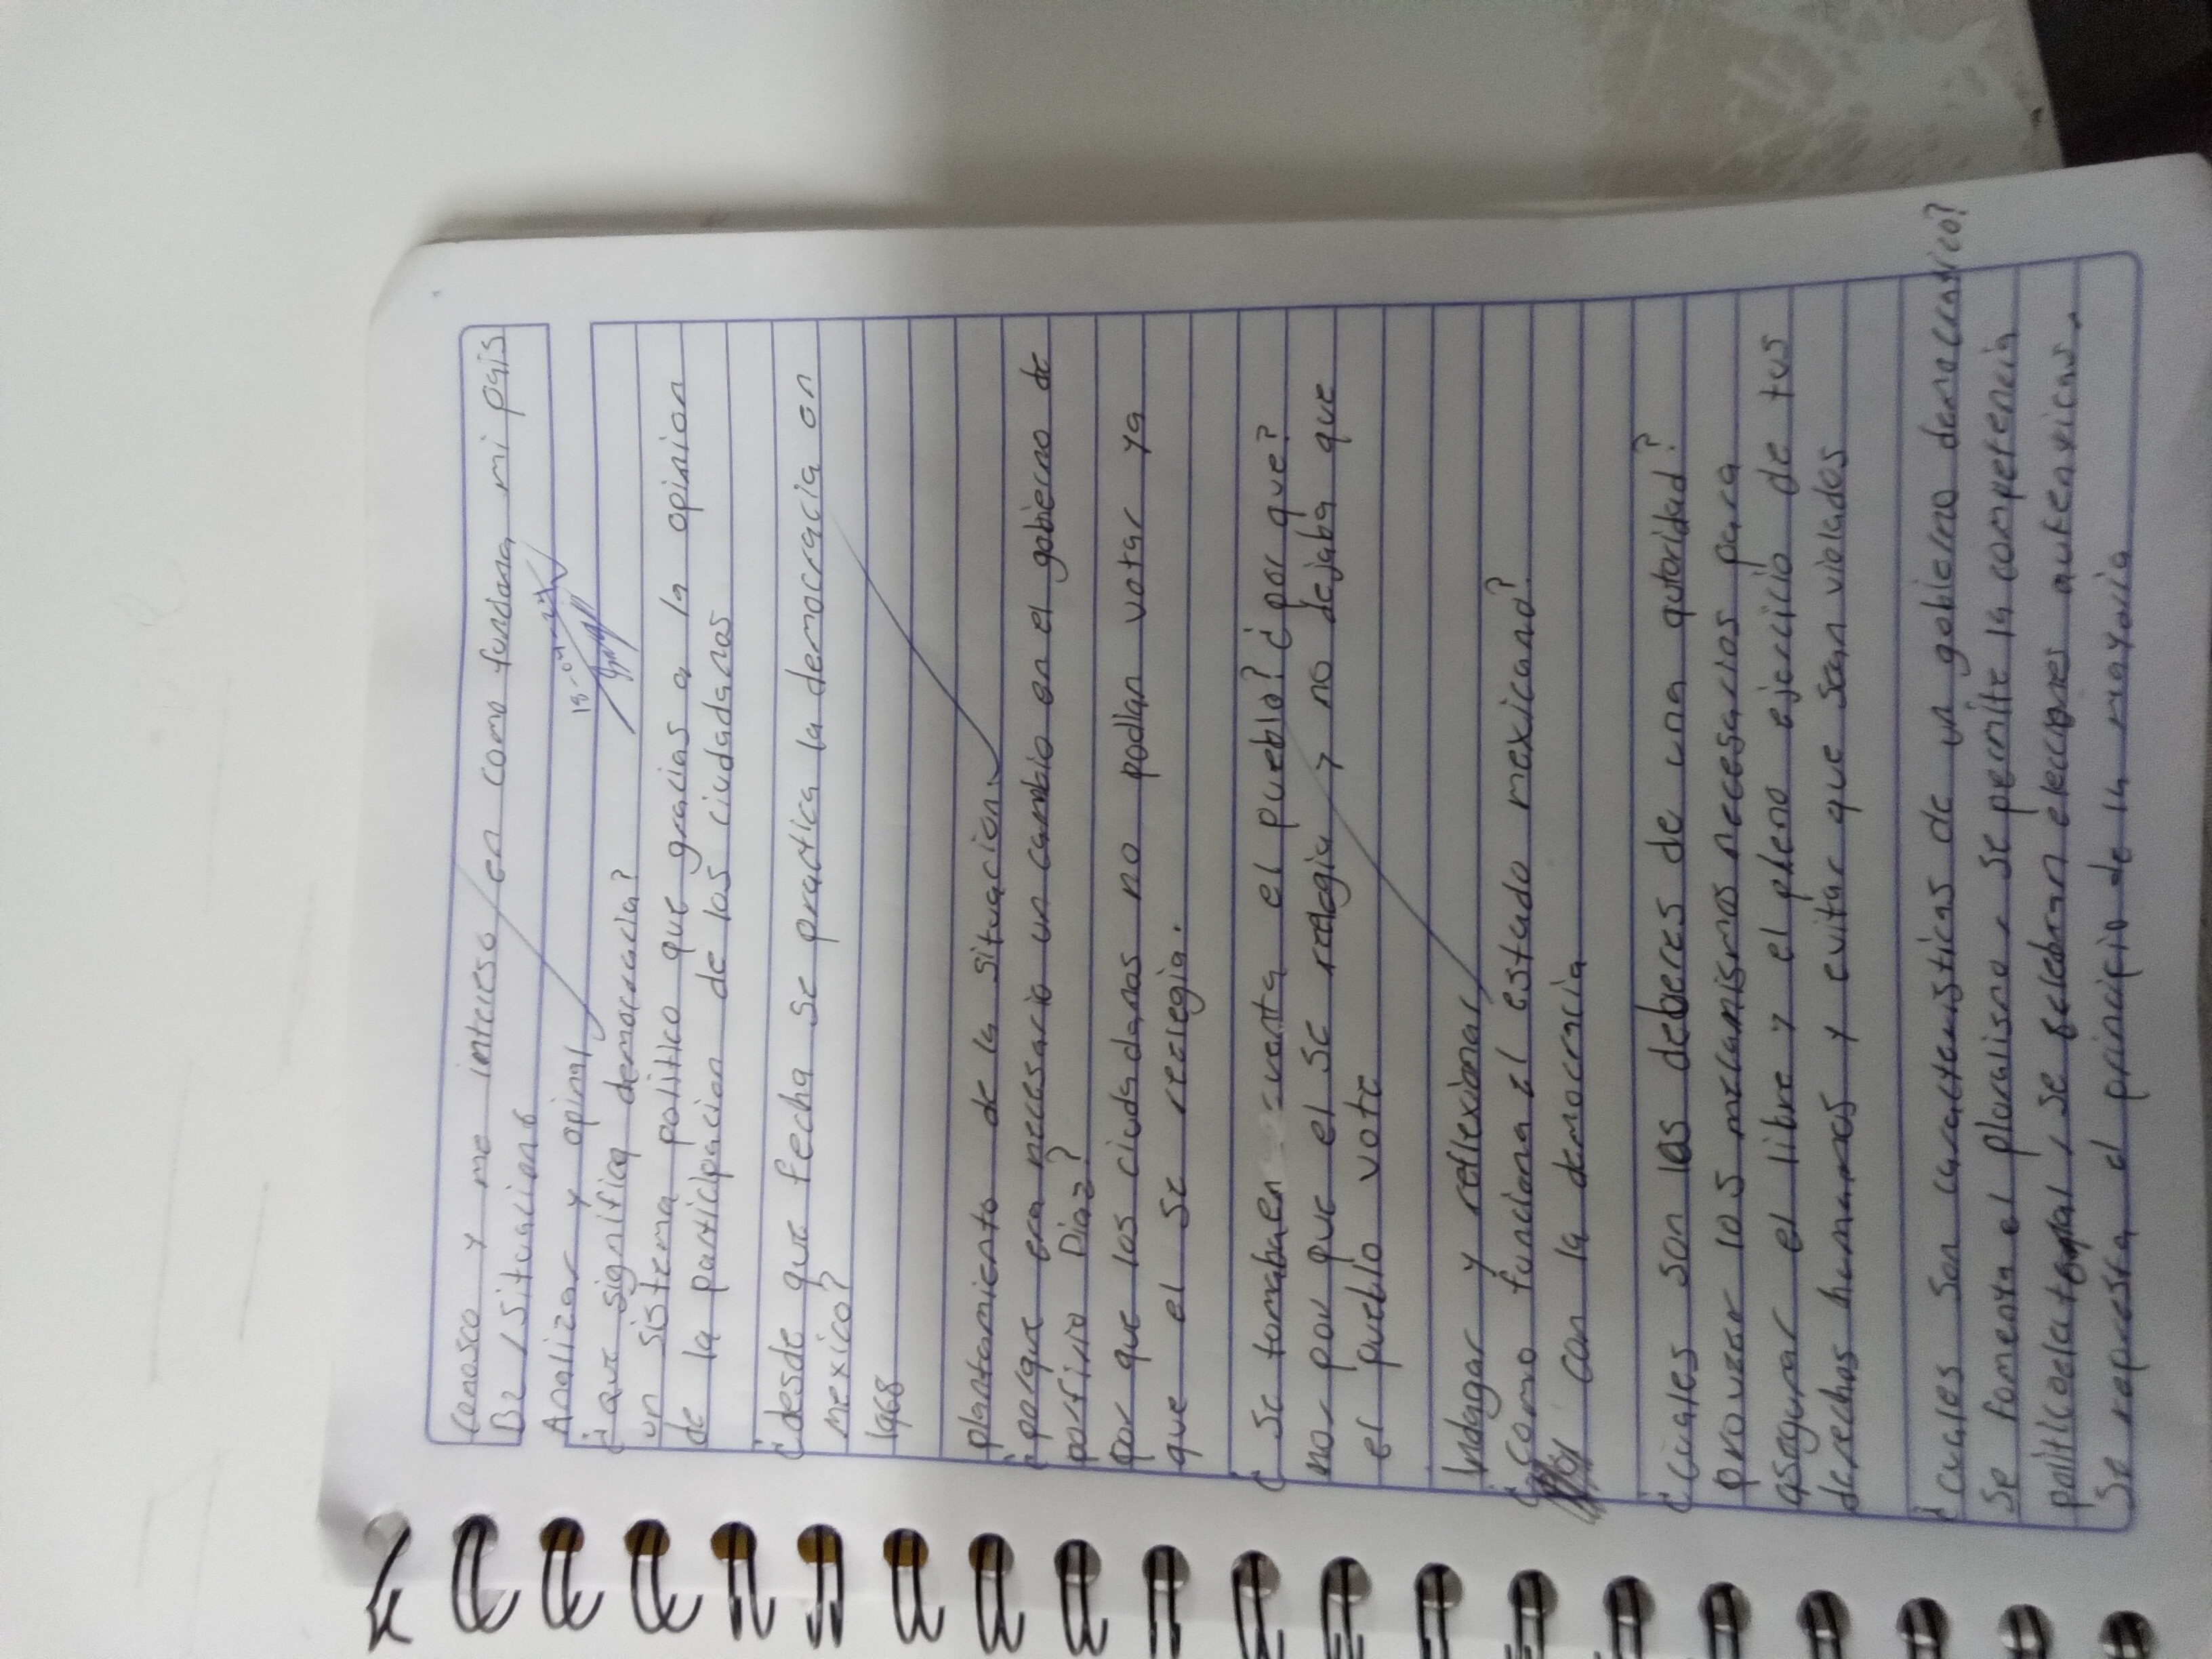 Conosco y me intereso en como fundona mi pais
B2 / Situacion 6
Analizar y opinar
¿que significa democracia?
un sistema politico que gracias a la opinion
de la participacion de los ciudadanos
¿desde que fecha se practica la democracia en
mexico?
1968
plantamiento de la situacion.
¿porque era necesario un cambio en el gobierno de
porfirio Diaz?
Por que los ciudadanos no podian votar ya
que el se reelegia.
¿ Se tomaba en cuenta el pueblo? ¿ por que?
no por que el se relegia y no dejaba que
el pueblo vote
Indagar y reflexionar
¿como funciona el estado mexicano?
con la democracia
¿cuales son los deberes de una autoridad?
proveer los mecanismos necesarios para
asegurar el libre y el pleno ejercicio de tus
derechos humanos y evitar que sean violados
¿cuales son caracteristicas de un gobierno democratico?
Se fomenta el pluralismo, se permite la competencia
se celebran elecciones autenticas,
Se respesta el principio de la mayoria